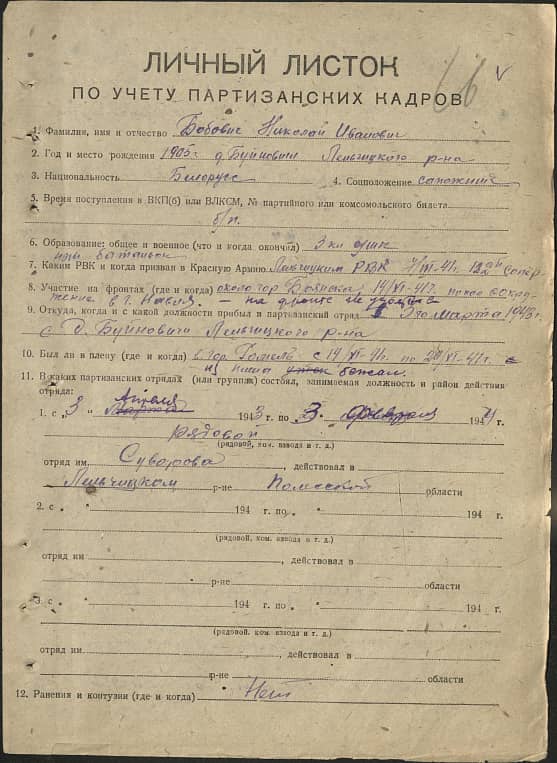 66 v
ЛИЧНЫЙ ЛИСТОК
ПО УЧЕТУ ПАРТИЗАНСКИХ КАДРОВ
1. Фамилия, имя и отчество Бобович Николай Иванович
2. Год и место рождения 1905 г. д. Буйновичи Лельчицкого р-на
3. Национальность Белорусс 4. Соцположение сапожник
5. Время поступления в ВКП(б) или ВЛКСМ, № партийного или комсомольского билета
б/п.
6. Образование: общее и военное (что и когда окончил) 3 кл
батальон
7. Каким РВК и когда призван в Красную Армию Лельчицким РВК 41 г.
8. Участие на фронтах (где и когда) около гор 41 г. попал в окру-
жение в г. — на фронте не
9. Откуда, когда и с какой должности прибыл в партизанский отряд 3го Марта 1943 г.
с д. Буйновичи Лельчицкого р-на
10. Был ли в плену (где и когда) в гор. Гомель с 14/VI-41 г. по 41 г.
из плена бежал.
11. В каких партизанских отрядах (или группах) состоял, занимаемая должность и район действия
отряда:
1. с " 3 " Апреля 1943 г. по 3 февраля 1944 г.
рядовой
(рядовой, ком. взвода и т. д.)
отряд им Суворова, действовал в
Лельчицком р-не Полесской области
2. с " " 194 г. по " 194 г.
(рядовой, ком. взвода и т. д.)
отряд им , действовал в
р-не области
3. с " " 194 г. по " " 194 г.
(рядовой, ком. взвода и т. д.)
отряд им , действовал в
р-не области
12. Ранения и контузии (где и когда) Нет